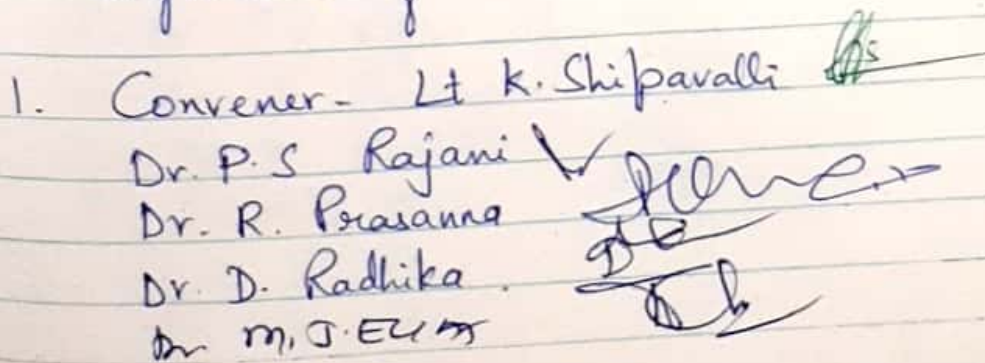 1. Convener- Lt K. Shilpavalli
Dr. P.S Rajani
Dr. R. Prasanna
Dr. D. Radhika.
Dr M.J.